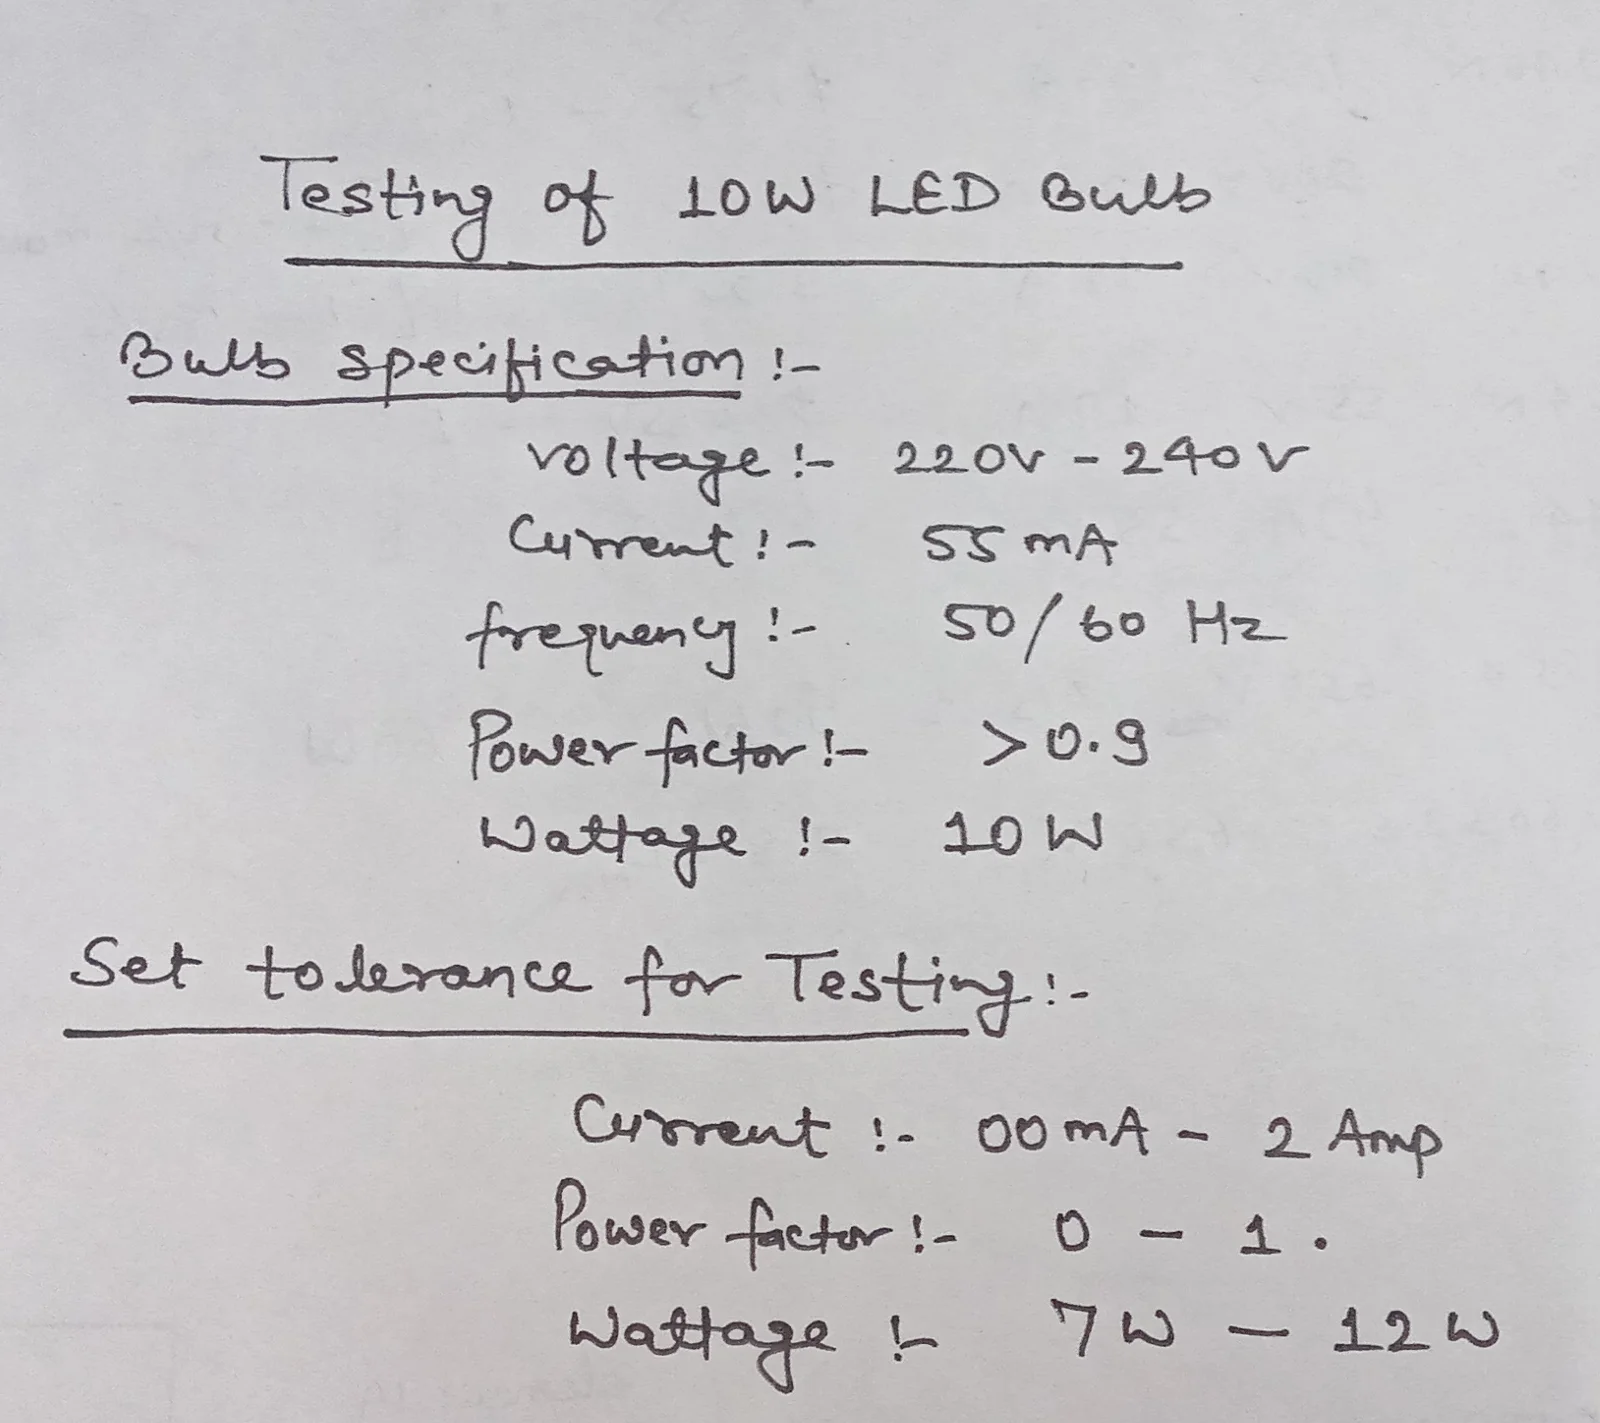 Testing of 10W LED Bulb
Bulb specification :-
voltage :- 220V - 240V
Current :- 55 mA
frequency :- 50/60 Hz
Power factor :- >0.9
Wattage :- 10W
Set tolerance for Testing :-
Current :- 00mA - 2 Amp
Power factor :- 0 - 1.
Wattage :- 7W - 12W